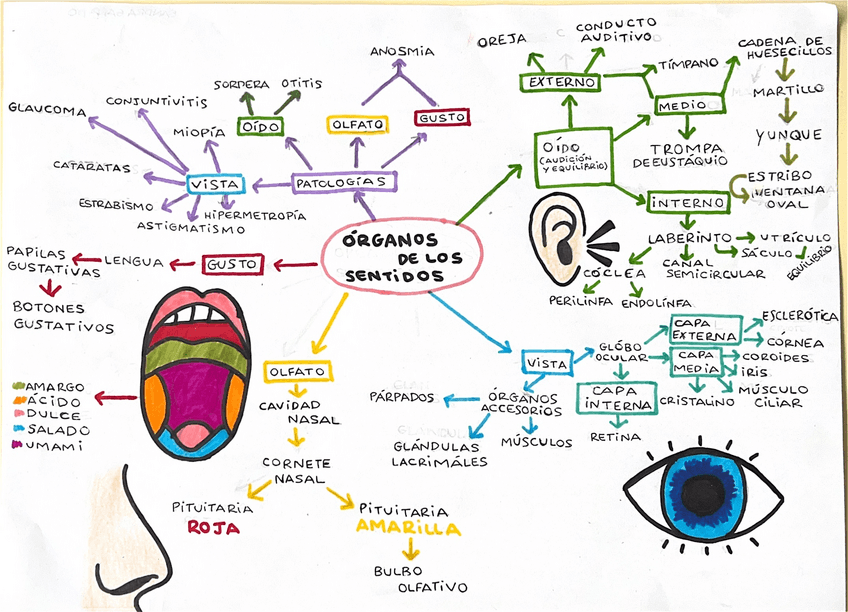 ÓRGANOS
DE LOS
SENTIDOS
PATOLOGÍAS
VISTA
GLAUCOMA
CONJUNTIVITIS
MIOPÍA
CATARATAS
ESTRABISMO
ASTIGMATISMO
HIPERMETROPÍA
OÍDO
SORDERA
OTITIS
OLFATO
GUSTO
ANOSMIA
OÍDO
(AUDICIÓN
Y EQUILIBRIO)
EXTERNO
OREJA
CONDUCTO
AUDITIVO
MEDIO
TÍMPANO
TROMPA
DE EUSTÁQUIO
CADENA DE
HUESECILLOS
MARTILLO
YUNQUE
ESTRIBO
VENTANA
OVAL
INTERNO
LABERINTO
UTRÍCULO
SÁCULO
EQUILIBRIO
CANAL
SEMICIRCULAR
CÓCLEA
PERILINFA
ENDOLINFA
GUSTO
LENGUA
PAPILAS
GUSTATIVAS
BOTONES
GUSTATIVOS
AMARGO
ÁCIDO
DULCE
SALADO
UMAMI
OLFATO
CAVIDAD
NASAL
CORNETE
NASAL
PITUITARIA
ROJA
PITUITARIA
AMARILLA
BULBO
OLFATIVO
VISTA
ÓRGANOS
ACCESORIOS
PÁRPADOS
GLÁNDULAS
LACRIMÁLES
MÚSCULOS
GLÓBO
OCULAR
CAPA
EXTERNA
ESCLERÓTICA
CÓRNEA
CAPA
MEDIA
COROIDES
IRIS
MÚSCULO
CILIAR
CRISTALINO
CAPA
INTERNA
RETINA